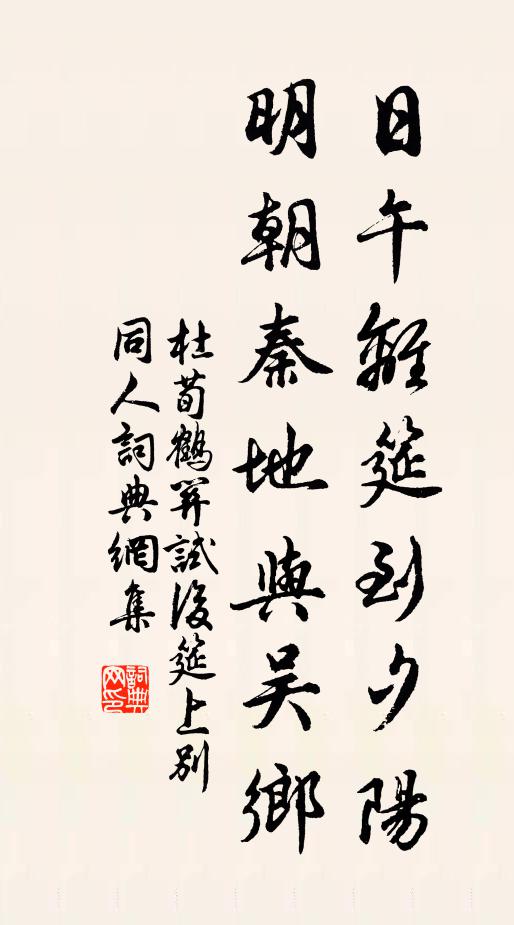 日午離筵到夕陽
明朝秦地與吳鄉
杜荀鶴畢試後筵上別
同人詞典網集
詞典
网印